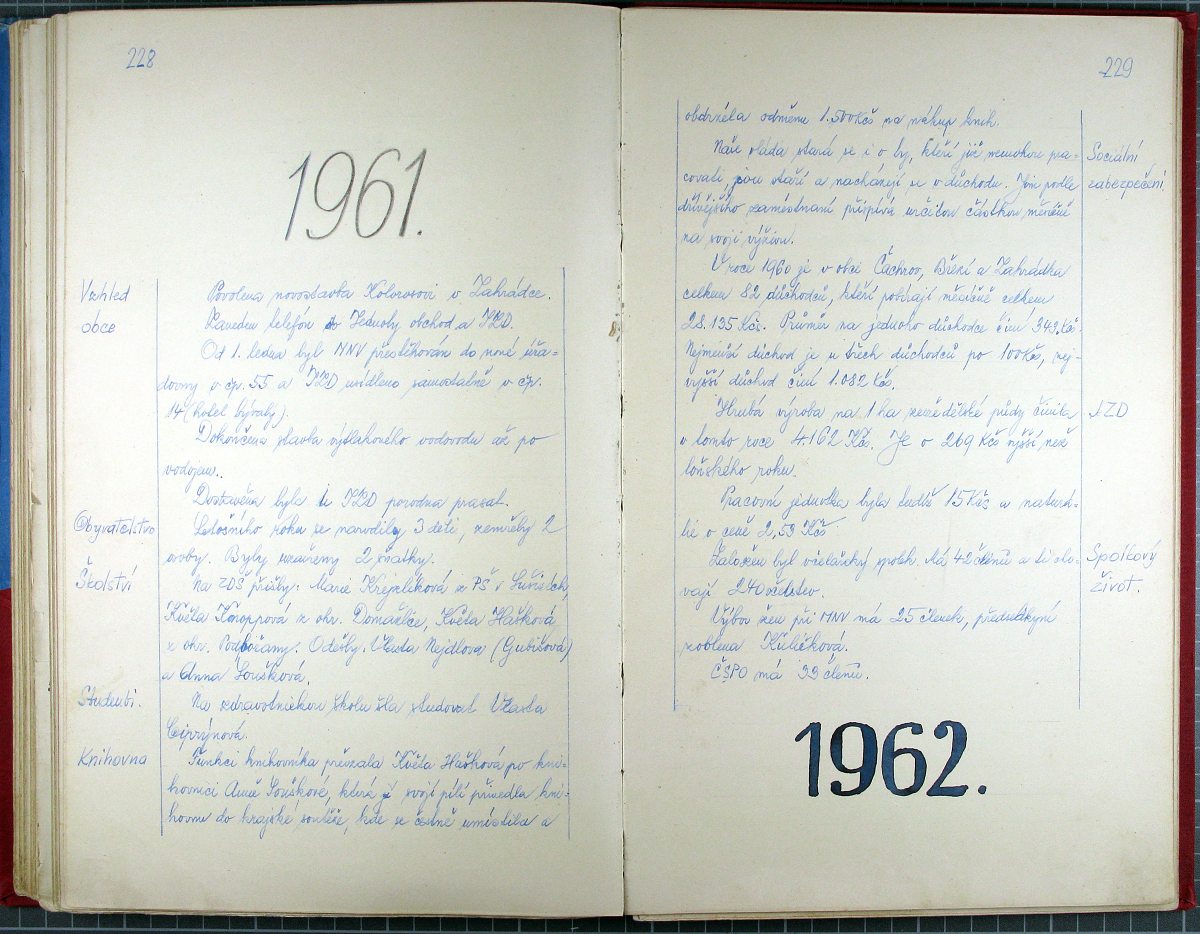 228
1961.
Vzhled
obce
Povolena novostavba Kolorosovi v Zahrádce.
Zaveden telefon do Jednoty, obchod a JZD.
Od 1. ledna byl MNV přestěhován do nové úřa-
dovny v čp. 55 a JZD usídleno samostatně v čp.
14 (hotel bývalý).
Dokončena stavba výtlakového vodovodu až po
vodojem.
Dostavěna byla u JZD porodna prasat.
Obyvatelstvo
Letošního roku se narodily 3 děti, zemřely 2
osoby. Byly uzavřeny 2 sňatky.
Školství
Na ZDŠ přišly: Marie Krejzlíková z PŠ v Sušicích,
Květa z okr. Domažlice, Květa Hašková
z okr. Podbořany. Odešly: Vlasta Nejdlova (Gubišová)
a Anna Soušková.
Studenti.
Na zdravotnickou školu šla studovat Vlasta
Ciprýnová.
Knihovna
Funkci knihovníka převzala Květa Hašková po kni-
hovnici Anně Souškové, která svojí pílí přivedla kni-
hovnu do krajské soutěže, kde se čestně umístila a
229
obdržela odměnu 1.500 Kčs na nákup knih.
Sociální
zabezpečení.
Naše vláda stará se i o ty, kteří již nemohou pra-
covati, jsou staří a nacházejí se v důchodu. Jim podle
dřívějšího zaměstnaní přispívá určitou částkou měsíčně
na svoji výživu.
V roce 1960 je v obci Čachrov, Březí a Zahrádka
celkem 82 důchodců, kteří pobírají měsíčně celkem
28.135 Kčs. Průměr na jednoho důchodce činí 343.Kčs.
Nejmenší důchod je u třech důchodců po 100 Kčs, nej-
vyšší důchod činí 1.082 Kčs.
JZD
Hrubá výroba na 1 ha zemědělské půdy činila
v tomto roce 4162 Kčs. Je o 269 Kčs vyšší než
loňského roku.
Pracovní jednotka byla 15 Kčs a naturá-
lie o ceně 2,53 Kčs
Spolkový
život.
Založen byl včelařský spolek. Má 42 členů a ti cho-
vají 240 včelstev.
Výbor žen při MNV má 25 členek, předsedkyní
zvolena Kuličková.
ČSPO má 33 členů.
1962.